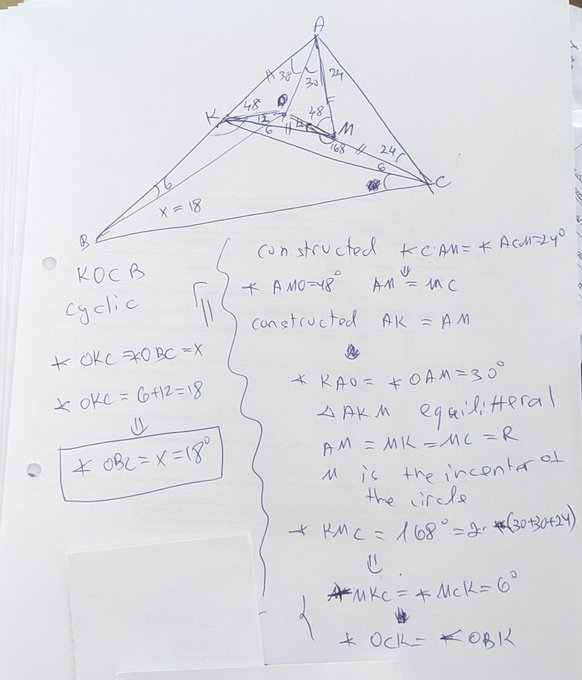 A
38
30
24
48
O
48
K
12
12
M
6
168
24
6
C
6
x = 18
B
KOCB
cyclic
∢ OKC = ∢OBC = x
∢ OKC = 6+12 = 18
⇓
∢ OBC = x = 18°
constructed ∢CAM = ∢ACM = 24°
⇓
∢ AMO = 48° AM = MC
constructed AK = AM
⇓
∢ KAO = ∢ OAM = 30°
△ AKM equilitteral
AM = MK = MC = R
M is the incenter of
the circle
∢ KMC = 168° = 2·∢(30+30+24)
⇓
∢ MKC = ∢ MCK = 6°
⇓
∢ OCK = ∢ OBK